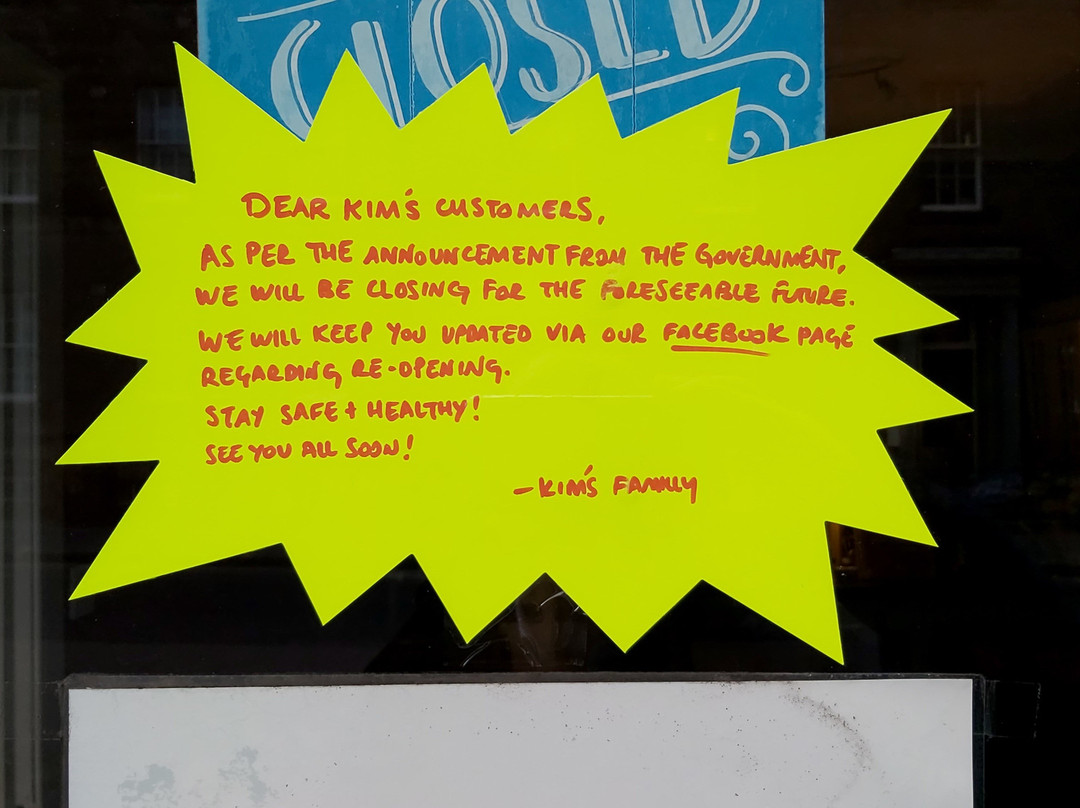 CLOSED
DEAR KIM'S CUSTOMERS,
AS PER THE ANNOUNCEMENT FROM THE GOVERNMENT,
WE WILL BE CLOSING FOR THE FORESEEABLE FUTURE.
WE WILL KEEP YOU UPDATED VIA OUR FACEBOOK PAGE
REGARDING RE-OPENING.
STAY SAFE + HEALTHY!
SEE YOU ALL SOON!
- KIM'S FAMILY